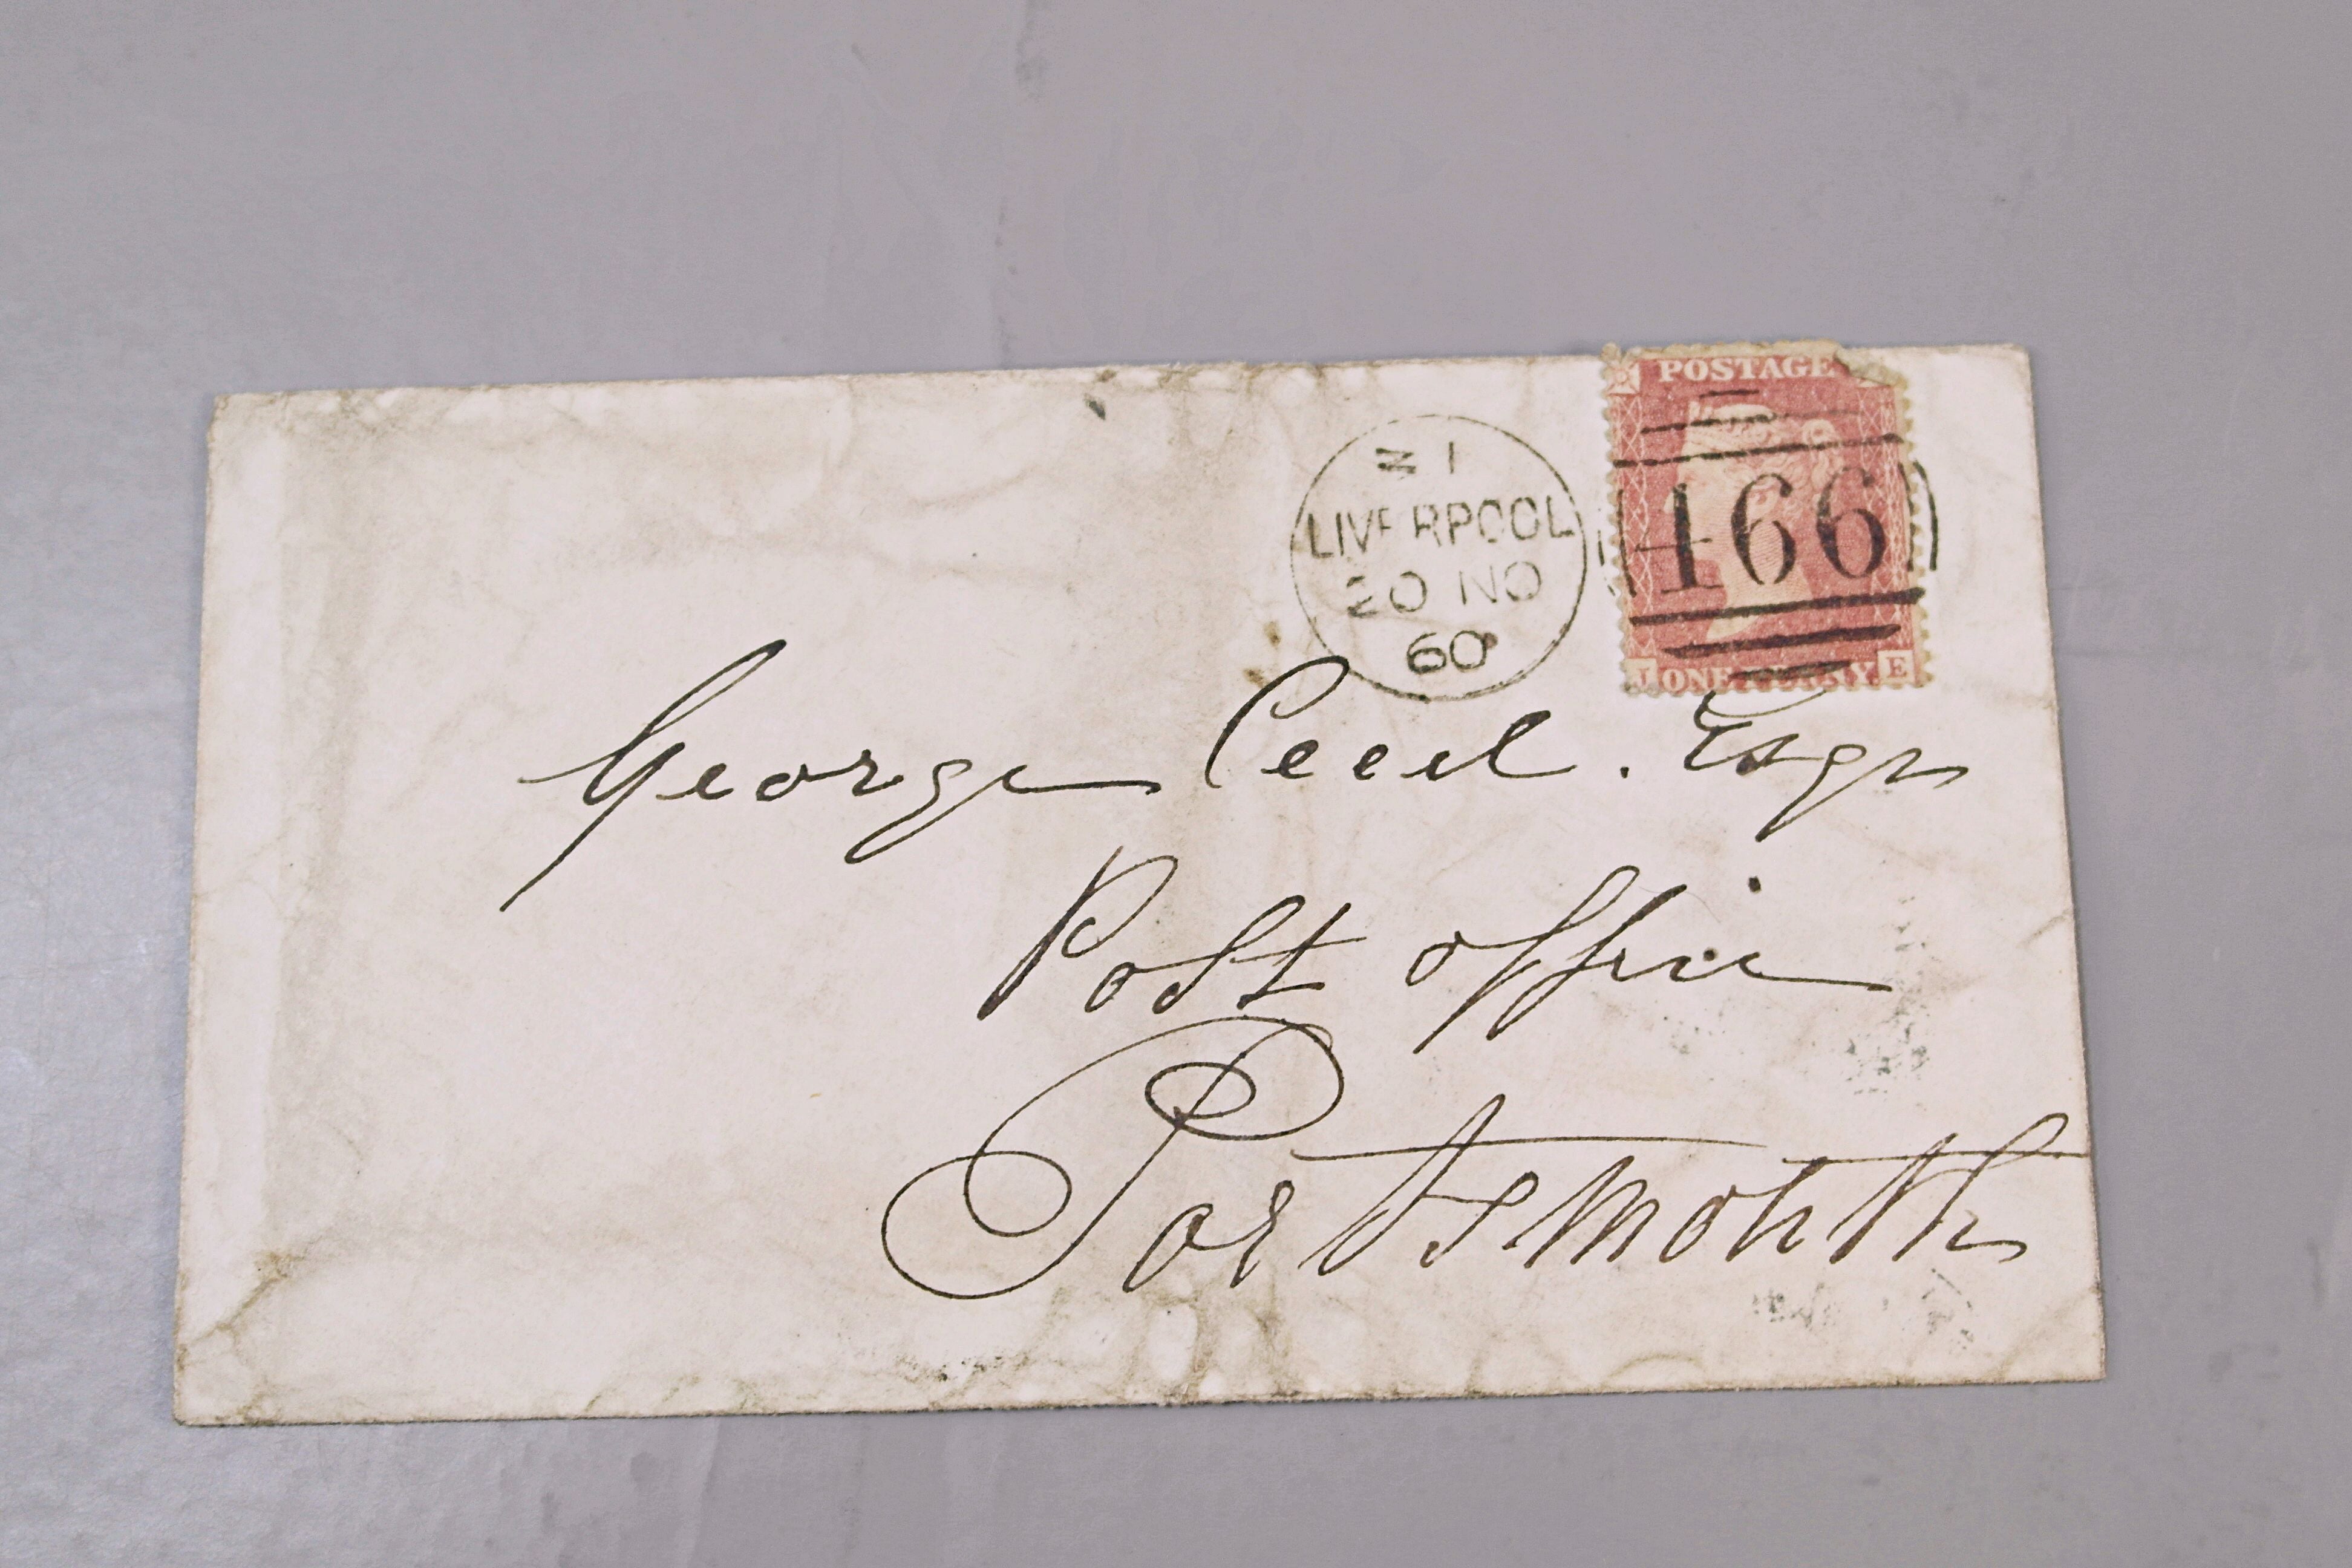 POSTAGE
Z 1
LIVERPOOL
20 NO
60
466
ONE PENNY E
George Cecil. Esqr
Post Office
Portsmouth